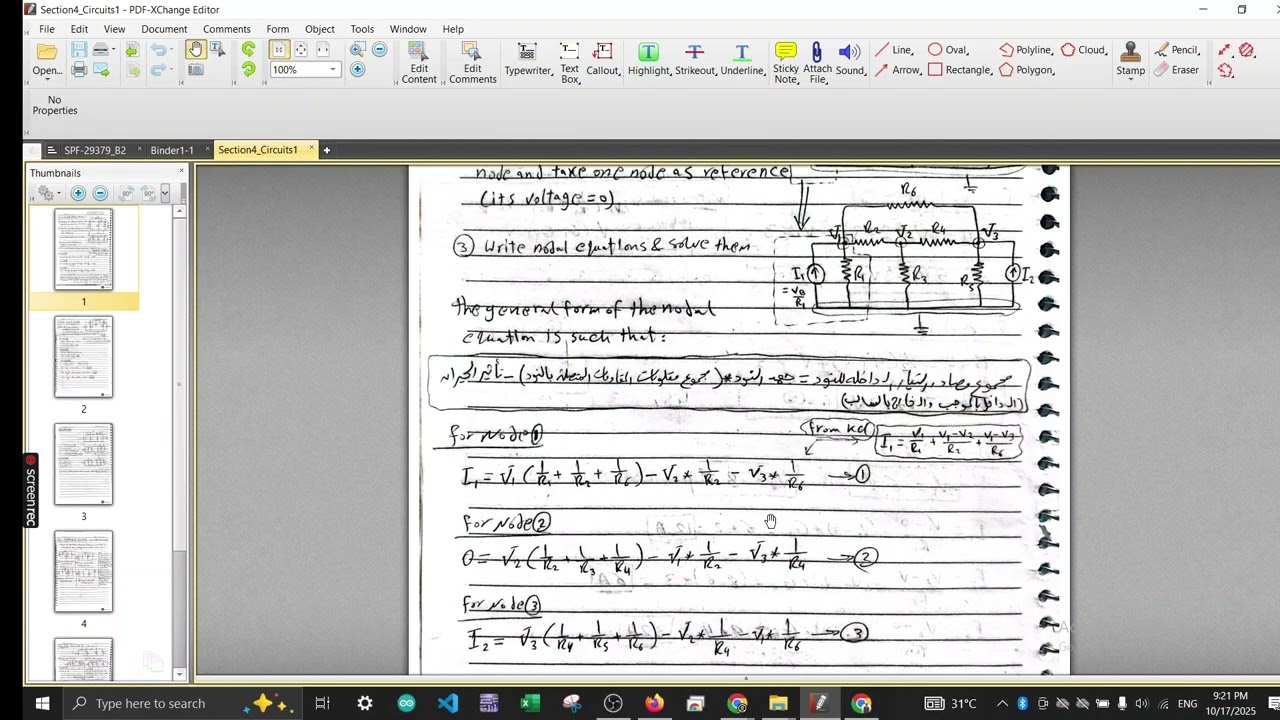 Section4_Circuits1 - PDF-XChange Editor
File Edit View Document Comments Form Object Tools Window Help
Open...
100%
Edit Content
Edit Comments
Typewriter,
Text Box,
Callout,
Highlight,
Strikeout,
Underline,
Sticky Note,
Attach File,
Sound,
Line,
Oval,
Polyline,
Cloud,
Arrow,
Rectangle,
Polygon,
Stamp
Pencil,
Eraser
No Properties
SPF-29379_B2
Binder1-1
Section4_Circuits1
Thumbnails
1
2
3
4
node and take one node as reference
(its voltage = 0)
③ Write nodal equations & solve them
R6
V1 R2 V2 R4 V3
I1 R1 R3 R5 I2
= VB/R1
the general form of the nodal
equation is such that:
مجموع مصادر التيار الداخلة للنود = جهد النود * (مجموع مقلوبات المقاومات المتصلة بالنود) - تأثير الجيران
(الداخل بالموجب والخارج بالسالب)
for Node①
from KCL
I1 = V1/R1 + (V1-V2)/R2 + (V1-V3)/R6
I1 = V1 (1/R1 + 1/R2 + 1/R6) - V2 * 1/R2 - V3 * 1/R6 → ①
for Node②
0 = V2 (1/R2 + 1/R3 + 1/R4) - V1 * 1/R2 - V3 * 1/R4 → ②
for Node③
I2 = V3 (1/R4 + 1/R5 + 1/R6) - V2 * 1/R4 - V1 * 1/R6 → ③
screen rec
Type here to search
31°C
ENG
9:21 PM
10/17/2025